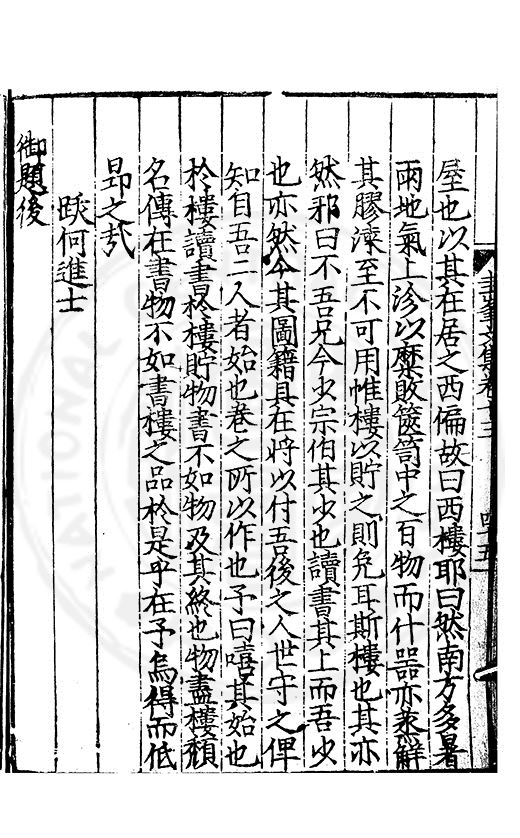 屋也以其在居之西偏故曰西樓耶曰然南方多暑
雨地氣上沴以糜敗篋笥中之百物而什器亦衆解
其膠湅至不可用惟樓以貯之則免耳斯樓也其亦
然邪曰不吾兄今少宗伯其少也讀書其上而吾少
也亦然今其圖籍具在將以付吾後之人世守之俾
知自吾二人者始也卷之所以作也予曰嘻其始也
於樓讀書於樓貯物書不如物及其終也物盡樓頹
名傳在書物不如書樓之品於是乎在予烏得而低
昂之㢤
跋何進士
御題後